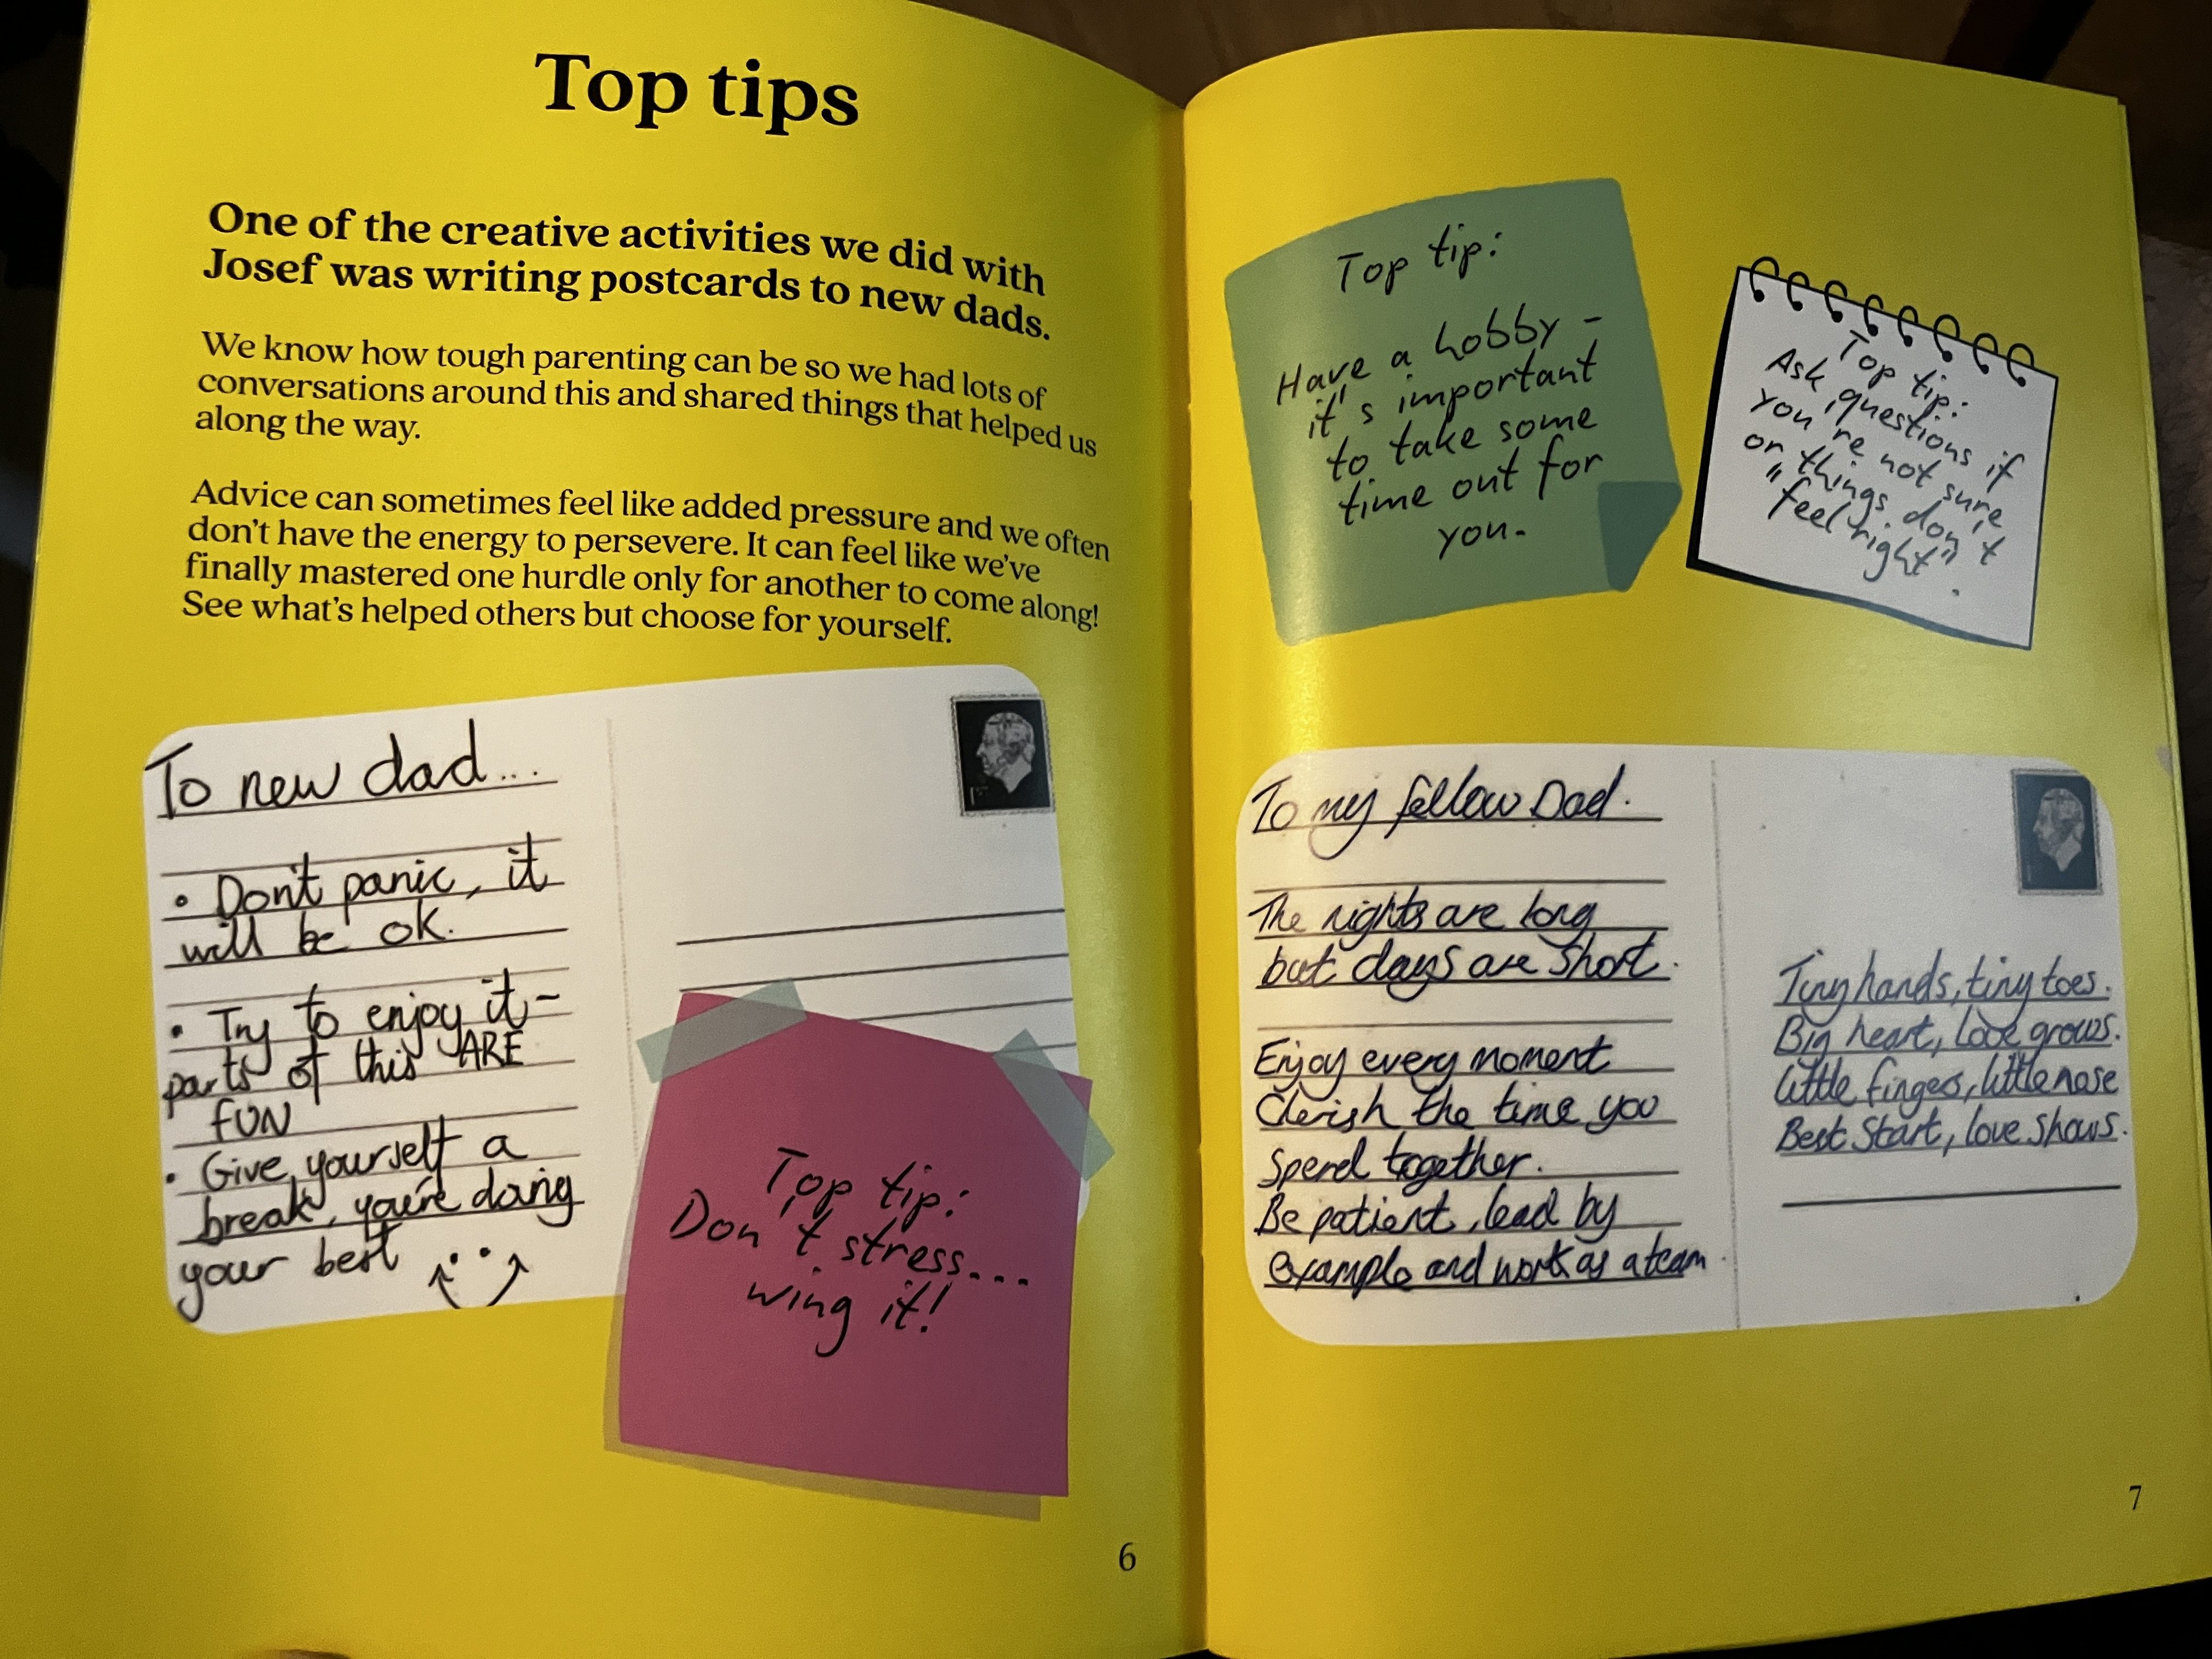 Top tips
One of the creative activities we did with
Josef was writing postcards to new dads.
We know how tough parenting can be so we had lots of
conversations around this and shared things that helped us
along the way.
Advice can sometimes feel like added pressure and we often
don't have the energy to persevere. It can feel like we've
finally mastered one hurdle only for another to come along!
See what's helped others but choose for yourself.
To new dad...
• Don't panic, it
will be ok.
• Try to enjoy it -
parts of this ARE
FUN
• Give yourself a
break, you're doing
your best
Top tip:
Don't stress...
wing it!
6
Top tip:
Have a hobby -
it's important
to take some
time out for
you.
Top tip:
Ask questions if
you're not sure
or things don't
"feel right".
To my fellow Dad.
The nights are long
but days are short.
Enjoy every moment
Cherish the time you
Spend together.
Be patient, lead by
example and work as a team.
Tiny hands, tiny toes.
Big heart, Love grows.
Little fingers, little nose
Best Start, love shows.
7